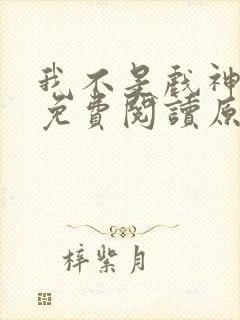 我不是戲神
免費閱讀原
梓紫月